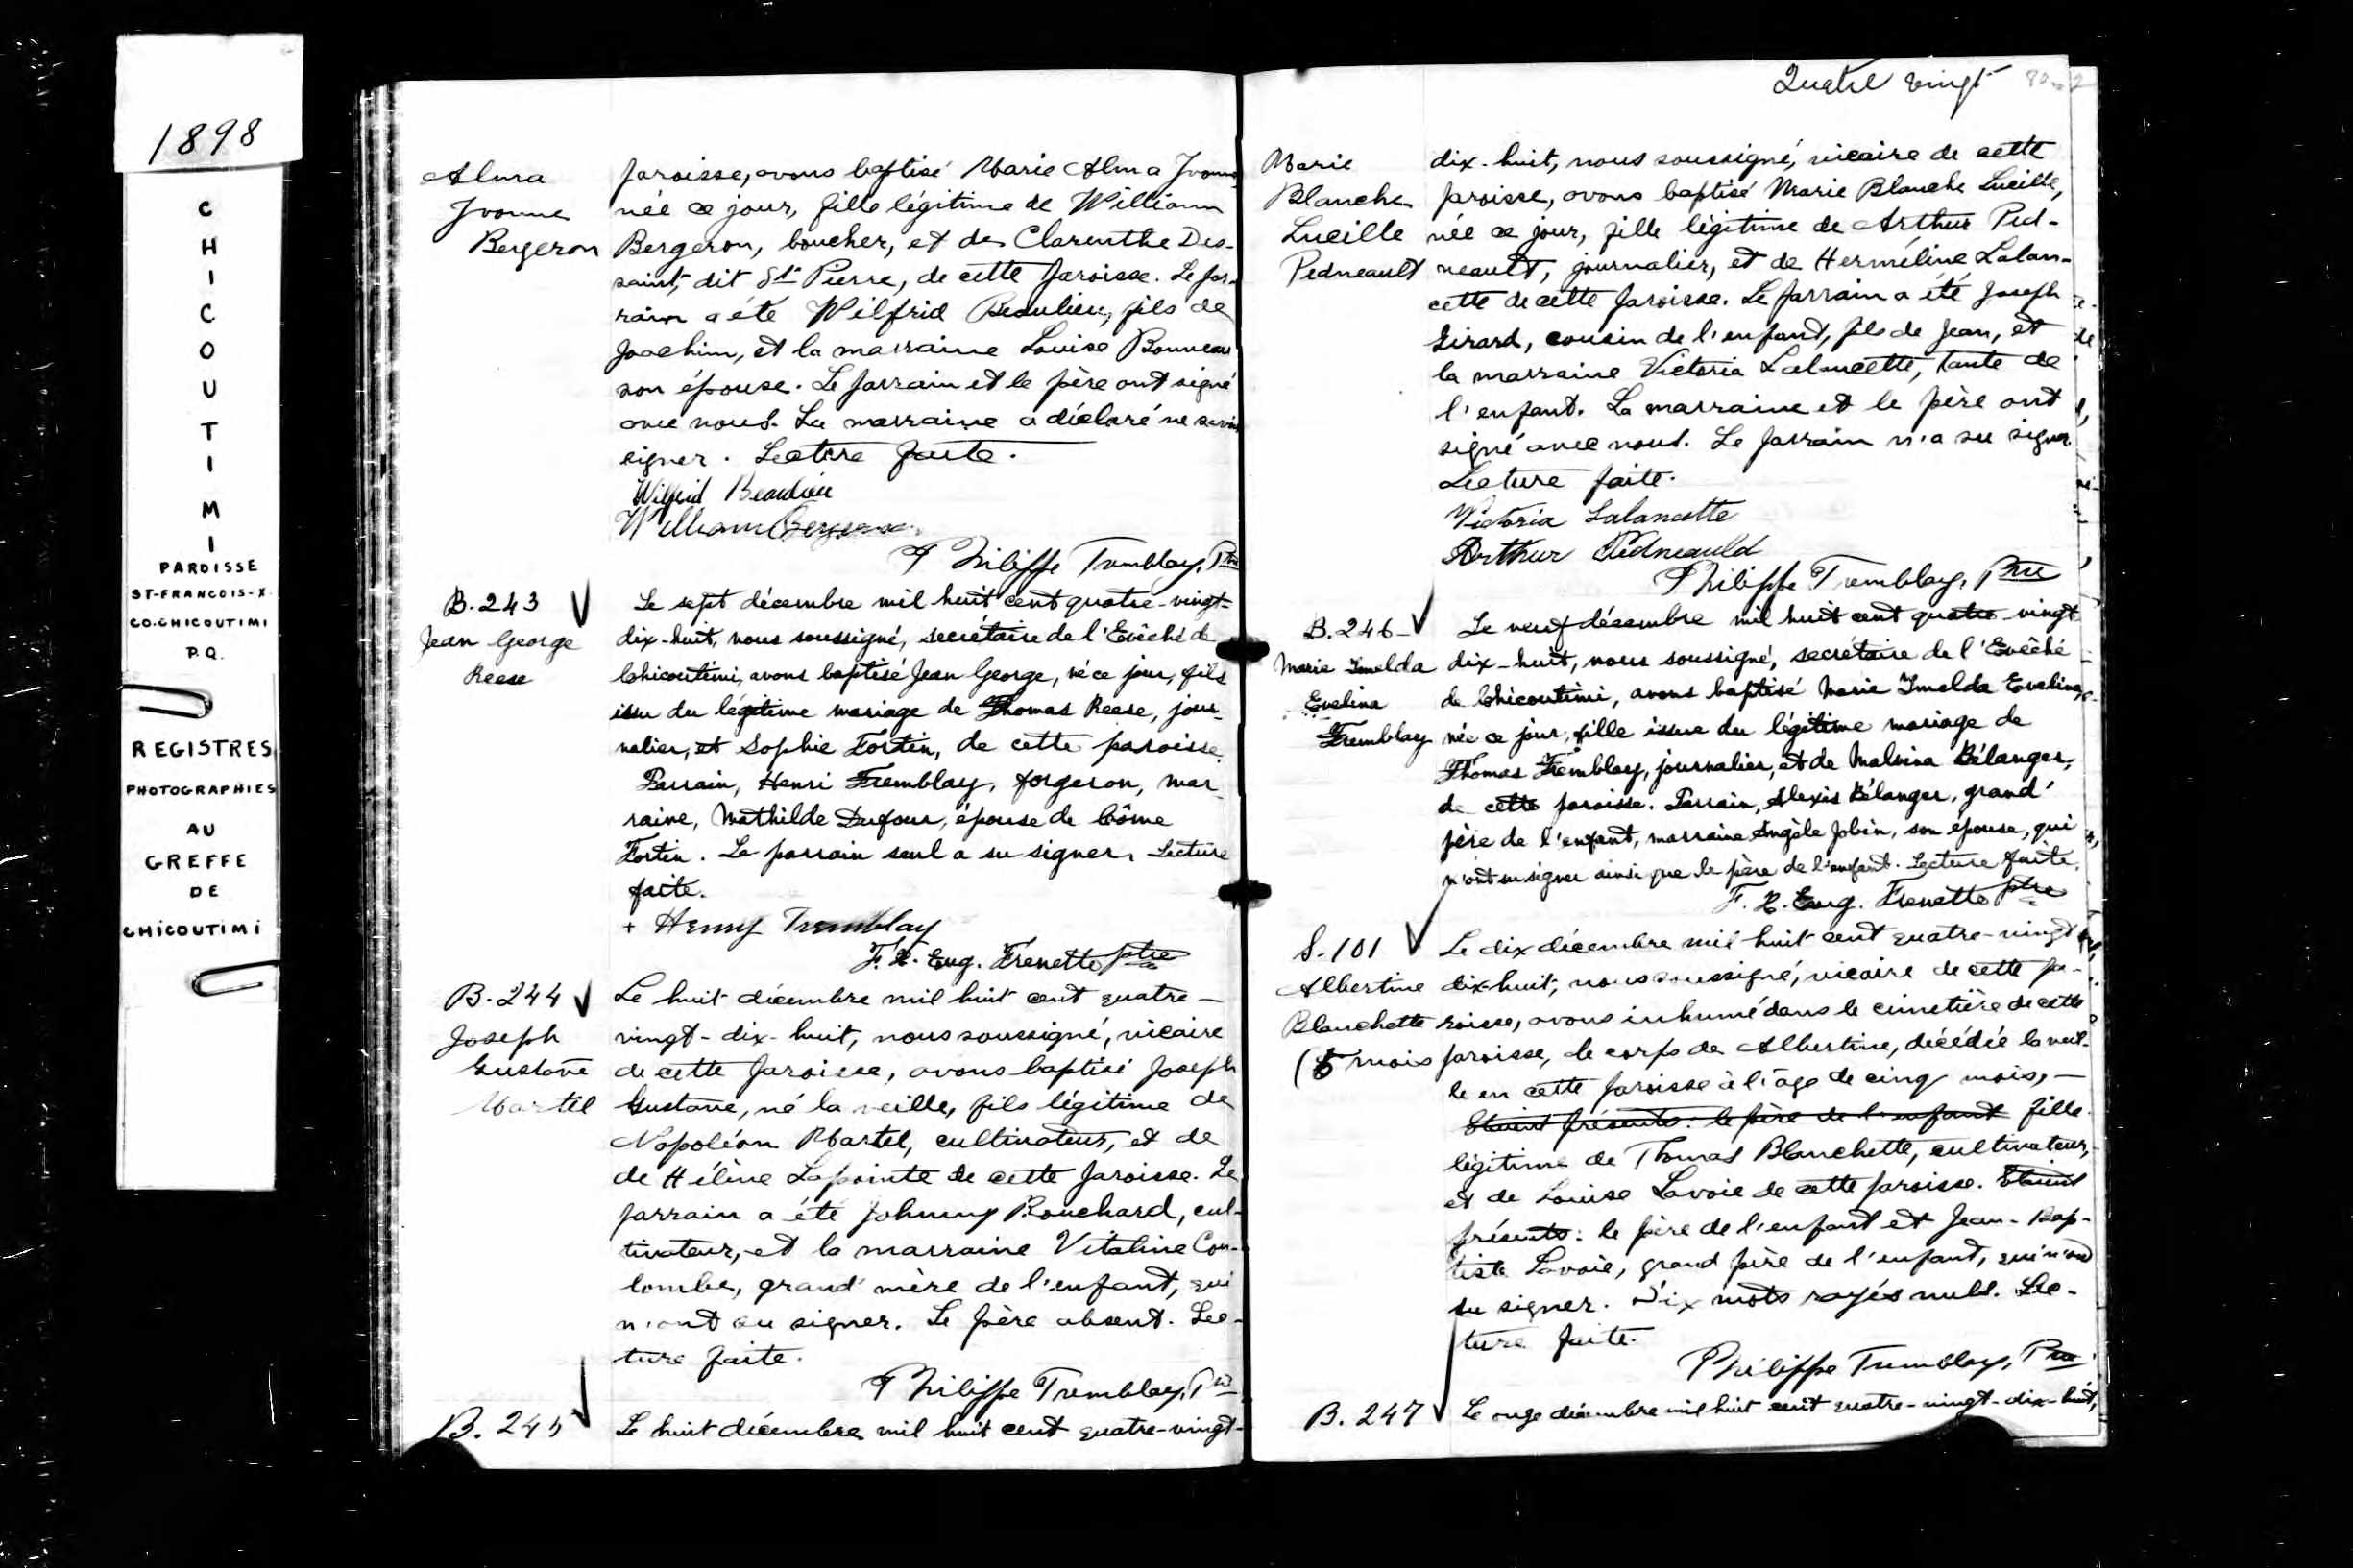 1898
CHICOUTIMI
PAROISSE
ST-FRANCOIS-X
CO. CHICOUTIMI
P.Q.
REGISTRES
PHOTOGRAPHIES
AU
GREFFE
DE
CHICOUTIMI
Alma
Yvonne
Bergeron
paroisse, avons baptisé Marie Alma Yvonne
née ce jour, fille légitime de William
Bergeron, boucher, et de Clarenthe Des-
saint, dit St Pierre, de cette paroisse. Le par-
rain a été Wilfrid Beaulieu, fils de
Joachim, et la marraine Louise Bonneau
son épouse. Le parrain et le père ont signé
avec nous. La marraine a déclaré ne savoir
signer. Lecture faite.
Wilfrid Beaulieu
William Bergeron
Philippe Tremblay, Ptre
B. 243
Jean George
Reese
Le sept décembre mil huit cent quatre-vingt-
dix-huit, nous soussigné, secrétaire de l'Evêché de
Chicoutimi, avons baptisé Jean George, né ce jour, fils
issu du légitime mariage de Thomas Reese, jour-
nalier, et Sophie Fortin, de cette paroisse.
Parrain, Henri Tremblay, forgeron, mar-
raine, Mathilde Dufour, épouse de Côme
Fortin. Le parrain seul a su signer. Lecture
faite.
+ Henry Tremblay
F. X. Eug. Frenette ptre
B. 244
Joseph
Gustave
Martel
Le huit décembre mil huit cent quatre-
vingt-dix-huit, nous soussigné, vicaire
de cette paroisse, avons baptisé Joseph
Gustave, né la veille, fils légitime de
Napoléon Martel, cultivateur, et de
de Hélène Lapointe de cette paroisse. Le
parrain a été Johnny Bouchard, cul-
tivateur, et la marraine Vitaline Cou-
lombe, grand'mère de l'enfant, qui
n'ont su signer. Le père absent. Lec-
ture faite.
Philippe Tremblay, Ptre
B. 245
Le huit décembre mil huit cent quatre-vingt-
Quatre vingt 80
Marie
Blanche
Lucille
Pedneault
dix-huit, nous soussigné, vicaire de cette
proisse, avons baptisé Marie Blanche Lucille,
née ce jour, fille légitime de Arthur Ped-
neault, journalier, et de Herméline Lalan-
cette de cette paroisse. Le parrain a été Joseph
Girard, cousin de l'enfant, fils de Jean, et
la marraine Victoria Lalancette, tante de
l'enfant. La marraine et le père ont
signé avec nous. Le parrain n'a su signer
Lecture faite.
Victoria Lalancette
Arthur Pedneauld
Philippe Tremblay, Ptre
B. 246
Marie Imelda
Evelina
Tremblay
Le neuf décembre mil huit cent quatre-vingt
dix-huit, nous soussigné, secrétaire de l'Evêché
de Chicoutimi, avons baptisé Marie Imelda Evelina,
née ce jour, fille issue du légitime mariage de
Thomas Tremblay, journalier, et de Malvina Bélanger,
de cette paroisse. Parrain, Alexis Bélanger, grand'
père de l'enfant, marraine Angèle Jobin, son épouse, qui
n'ont su signer ainsi que le père de l'enfant. Lecture faite.
F. X. Eug. Frenette ptre
S. 101
Albertine
Blanchette
(5 mois
Le dix décembre mil huit cent quatre-vingt
dix-huit, nous soussigné, vicaire de cette pa-
roisse, avons inhumé dans le cimetière de cette
paroisse, le corps de Albertine, décédée la veil-
le en cette paroisse à l'âge de cinq mois,
Etaient présents: le père de l'enfant fille
légitime de Thomas Blanchette, cultivateur,
et de Louise Lavoie de cette paroisse. Etaient
présents: le père de l'enfant et Jean-Bap-
tiste Lavoie, grand père de l'enfant, qui n'ont
su signer. Dix mots rayés nuls. Lec-
ture faite.
Philippe Tremblay, Ptre
B. 247
Le onze décembre mil huit cent quatre-vingt-dix-huit,